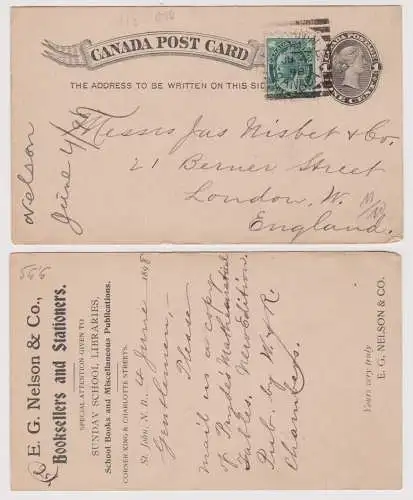 CANADA POST CARD
THE ADDRESS TO BE WRITTEN ON THIS SIDE
CANADA POSTAGE
ONE CENT
Nelson
June 4/98
Messrs Jas Nisbet & Co.
21 Berner Street
London, W.
England.
566
E. G. Nelson & Co.,
Booksellers and Stationers.
SPECIAL ATTENTION GIVEN TO
SUNDAY SCHOOL LIBRARIES,
School Books and Miscellaneous Publications.
CORNER KING & CHARLOTTE STREETS.
St. John, N. B., 4 June 1898
Gentlemen,—
Please
mail us a copy
of Pryde's Mathematical
Tables. New Edition.
Pub. by W & R.
Chambers.
Yours very truly
E. G. NELSON & CO.